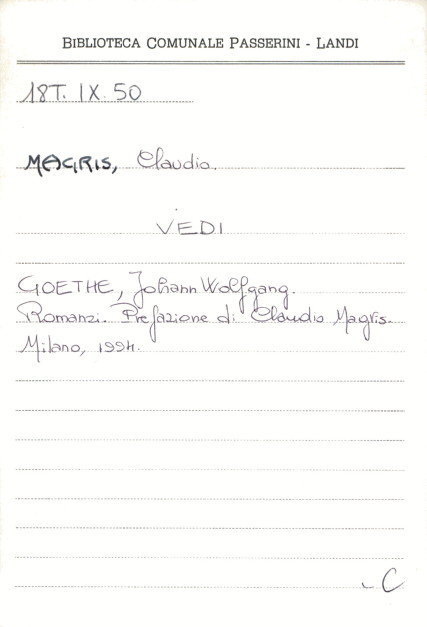 BIBLIOTECA COMUNALE PASSERINI - LANDI
18T. IX. 50
MAGRIS, Claudio.
VEDI
GOETHE, Johann Wolfgang.
Romanzi. Prefazione di Claudio Magris.
Milano, 1994.
C